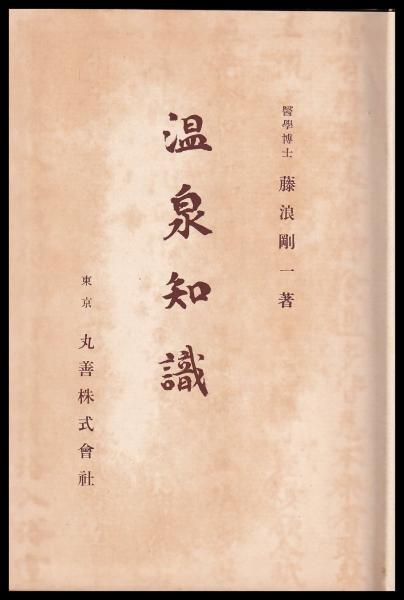 醫學博士 藤浪剛一著
温泉知識
東京 丸善株式會社